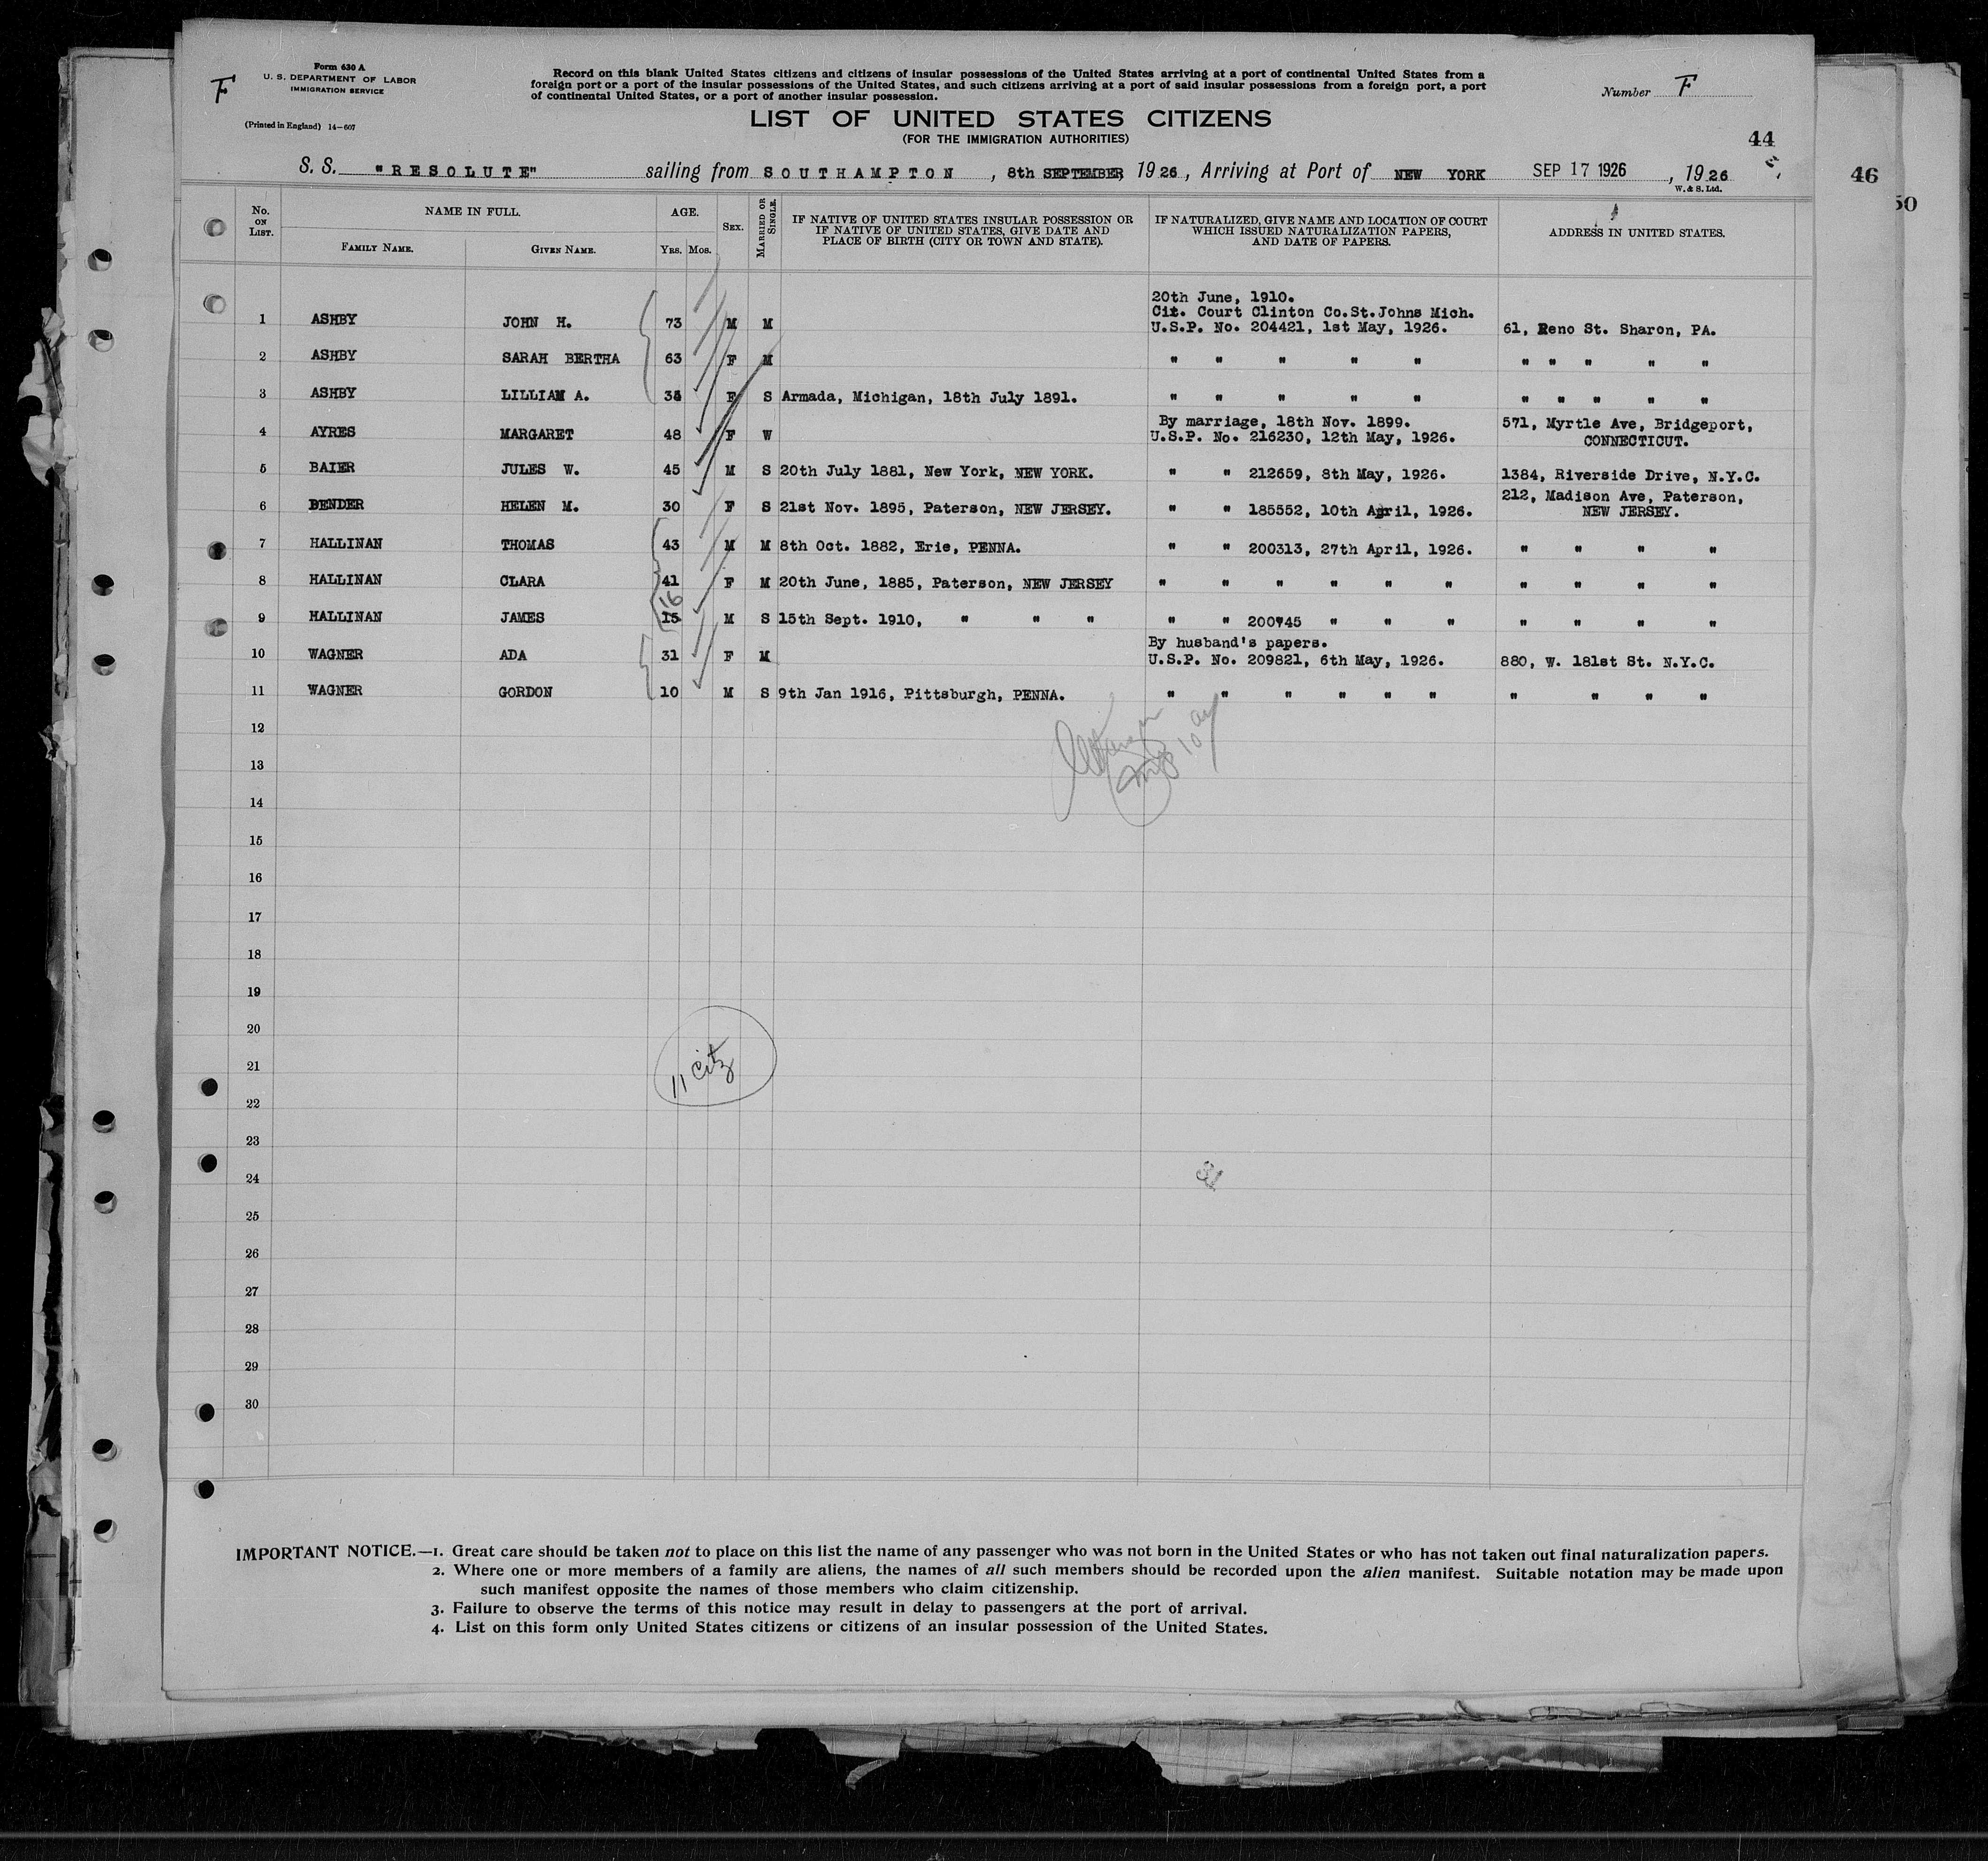 F
Form 630 A
U. S. DEPARTMENT OF LABOR
IMMIGRATION SERVICE
(Printed in England) 14—607
Record on this blank United States citizens and citizens of insular possessions of the United States arriving at a port of continental United States from a
foreign port or a port of the insular possessions of the United States, and such citizens arriving at a port of said insular possessions from a foreign port, a port
of continental United States, or a port of another insular possession.
Number F
LIST OF UNITED STATES CITIZENS
(FOR THE IMMIGRATION AUTHORITIES)
44
46
50
S. S. "RESOLUTE" sailing from SOUTHAMPTON, 8th SEPTEMBER, 1926, Arriving at Port of NEW YORK SEP 17 1926, 1926
W. & S. Ltd.
No. ON LIST. NAME IN FULL. AGE. SEX. MARRIED OR SINGLE. IF NATIVE OF UNITED STATES INSULAR POSSESSION OR IF NATIVE OF UNITED STATES, GIVE DATE AND PLACE OF BIRTH (CITY OR TOWN AND STATE). IF NATURALIZED, GIVE NAME AND LOCATION OF COURT WHICH ISSUED NATURALIZATION PAPERS, AND DATE OF PAPERS. ADDRESS IN UNITED STATES.
FAMILY NAME. GIVEN NAME. YRS. MOS.
20th June, 1910.
Cit. Court Clinton Co.St.Johns Mich.
1 ASHBY JOHN H. 73 M M U.S.P. No. 204421, 1st May, 1926. 61, Reno St. Sharon, PA.
2 ASHBY SARAH BERTHA 63 F M " " " " " " " " " "
3 ASHBY LILLIAN A. F S Armada, Michigan, 18th July 1891. " " " " " " " " " "
By marriage, 18th Nov. 1899. 571, Myrtle Ave, Bridgeport,
4 AYRES MARGARET 48 F W U.S.P. No. 216230, 12th May, 1926. CONNECTICUT.
5 BAIER JULES W. 45 M S 20th July 1881, New York, NEW YORK. " " 212659, 8th May, 1926. 1384, Riverside Drive, N.Y.C.
212, Madison Ave, Paterson,
6 BENDER HELEN M. 30 F S 21st Nov. 1895, Paterson, NEW JERSEY. " " 185552, 10th April, 1926. NEW JERSEY.
7 HALLINAN THOMAS 43 M M 8th Oct. 1882, Erie, PENNA. " " 200313, 27th April, 1926. " " " "
8 HALLINAN CLARA 41 F M 20th June, 1885, Paterson, NEW JERSEY " " " " " " " " " "
16
9 HALLINAN JAMES 15 M S 15th Sept. 1910, " " " " " 200745 " " " " " " "
By husband's papers.
10 WAGNER ADA 31 F M U.S.P. No. 209821, 6th May, 1926. 880, W. 181st St. N.Y.C.
11 WAGNER GORDON 10 M S 9th Jan 1916, Pittsburgh, PENNA. " " " " " " " " " "
12
13
14
15
16
17
18
19
20
21
11 citz
22
23
24
25
26
27
28
29
30
IMPORTANT NOTICE.—1. Great care should be taken not to place on this list the name of any passenger who was not born in the United States or who has not taken out final naturalization papers.
2. Where one or more members of a family are aliens, the names of all such members should be recorded upon the alien manifest. Suitable notation may be made upon
such manifest opposite the names of those members who claim citizenship.
3. Failure to observe the terms of this notice may result in delay to passengers at the port of arrival.
4. List on this form only United States citizens or citizens of an insular possession of the United States.